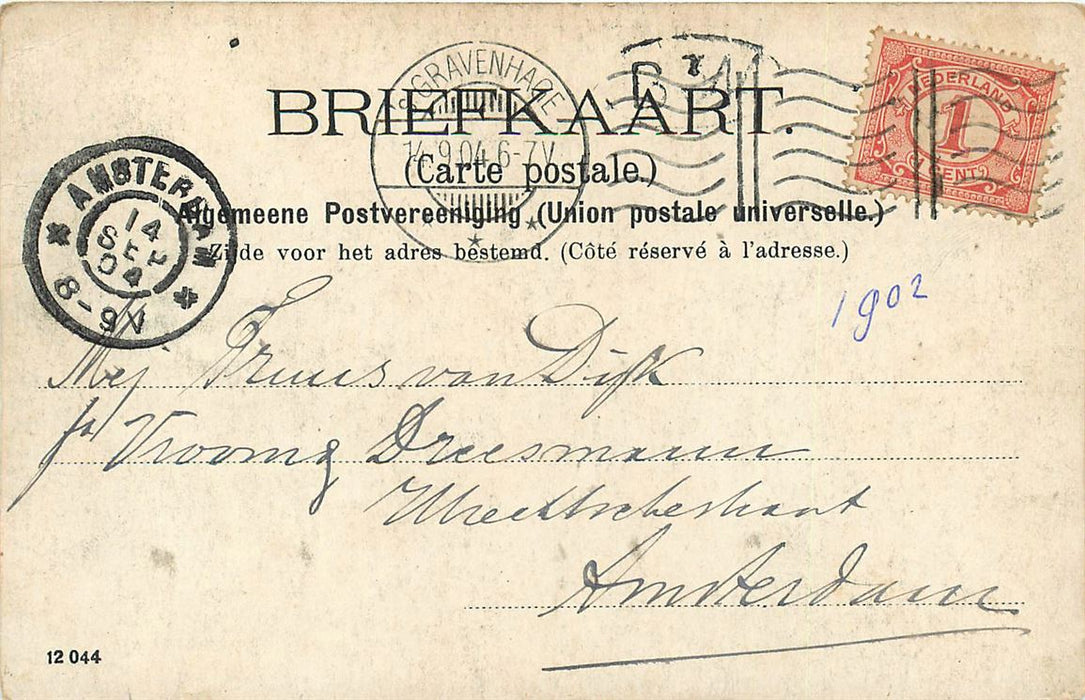 'S GRAVENHAGE
14.9.04 6-7V
NEDERLAND
1
CENT
BRIEFKAART.
(Carte postale.)
Algemeene Postvereeniging (Union postale universelle.)
Zijde voor het adres bestemd. (Côté réservé à l'adresse.)
AMSTERDAM
14
SEP
04
8-9V
1902
Mej Truus van Dijk
fa Vroom & Dreesmann
Utrechtschestraat
Amsterdam
12 044